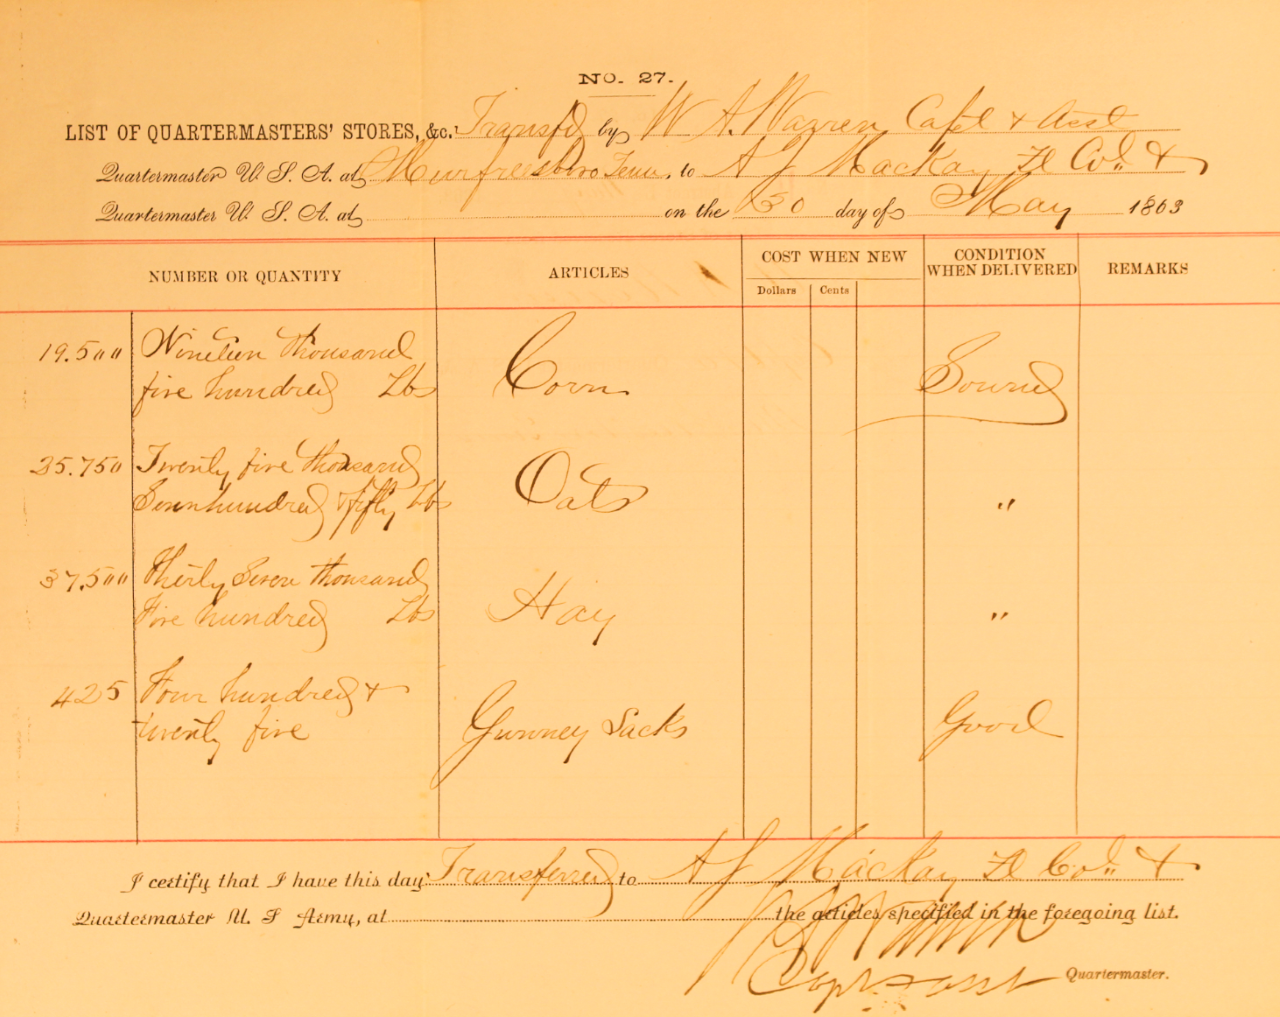 NO. 27.
LIST OF QUARTERMASTERS' STORES, &c. Transfd by W A. Warren Capt & Asst
Quartermaster U. S. A. at Murfreesboro Tenn, to A J Mackay Lt Col. &
Quartermaster U. S. A. at on the 30 day of May 1863
NUMBER OR QUANTITY ARTICLES COST WHEN NEW CONDITION WHEN DELIVERED REMARKS
Dollars Cents
19.500 Nineteen thousand
five hundred Lbs Corn Sound
25.750 Twenty five thousand
Seven hundred & fifty Lbs Oats "
37.500 Thirty Seven thousand
Five hundred Lbs Hay "
425 Four hundred &
twenty five Gunney Sacks Good
I certify that I have this day Transferred to A J Mackay Lt Col. &
Quartermaster U. S Army, at the articles specified in the foregoing list.
Capt & Asst Quartermaster.